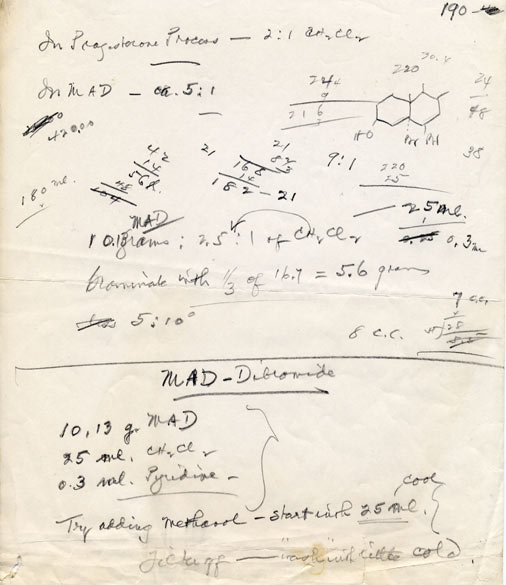 190
In Progesterone Process — 2:1 CH2Cl2
In MAD — ca. 5:1
220
24
48
216
HO
38
9:1
220
25
180 ml.
21
182 - 21
25 ml.
0.3 m
MAD
10.13 grams; 2.5:1 of CH2Cl2
brominate with 1/3 of 16.7 = 5.6 grams
5:10°
7 c.c.
8 c.c.
MAD-Dibromide
10,13 g. MAD
25 ml. CH2Cl2
0.3 ml. Pyridine -
cool
Try adding methanol - start with 25 ml.
Filter off — wash with little cold.